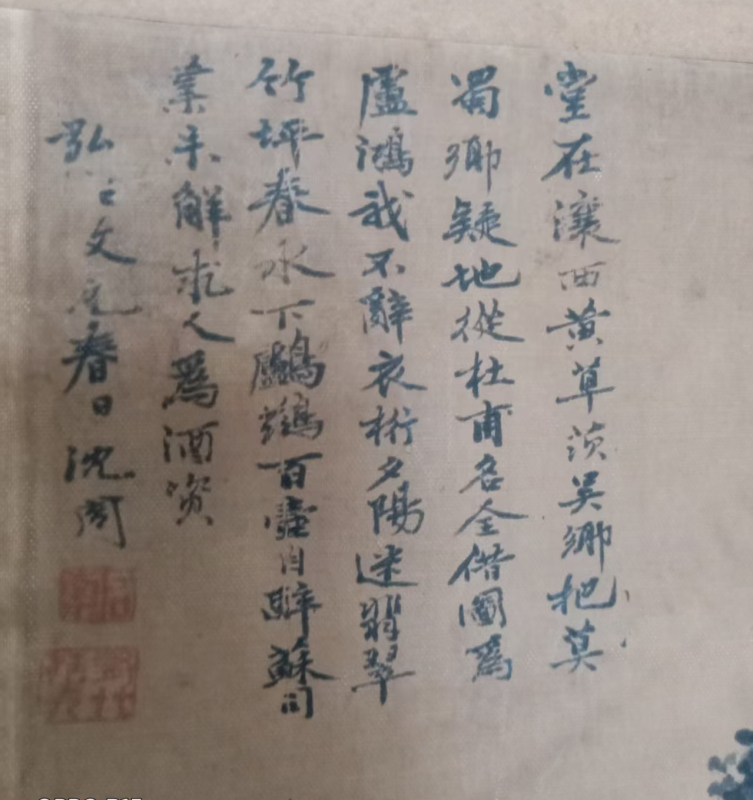 堂在瀼西黄草茨吴鄉把莫
蜀鄉疑地從杜甫名全借圖爲
盧鴻我不辭衣桁夕陽迷翡翠
竹坪春水下鸕鶿百壺自醉蘇司
業未解求人爲酒資
弘文元春日沈周